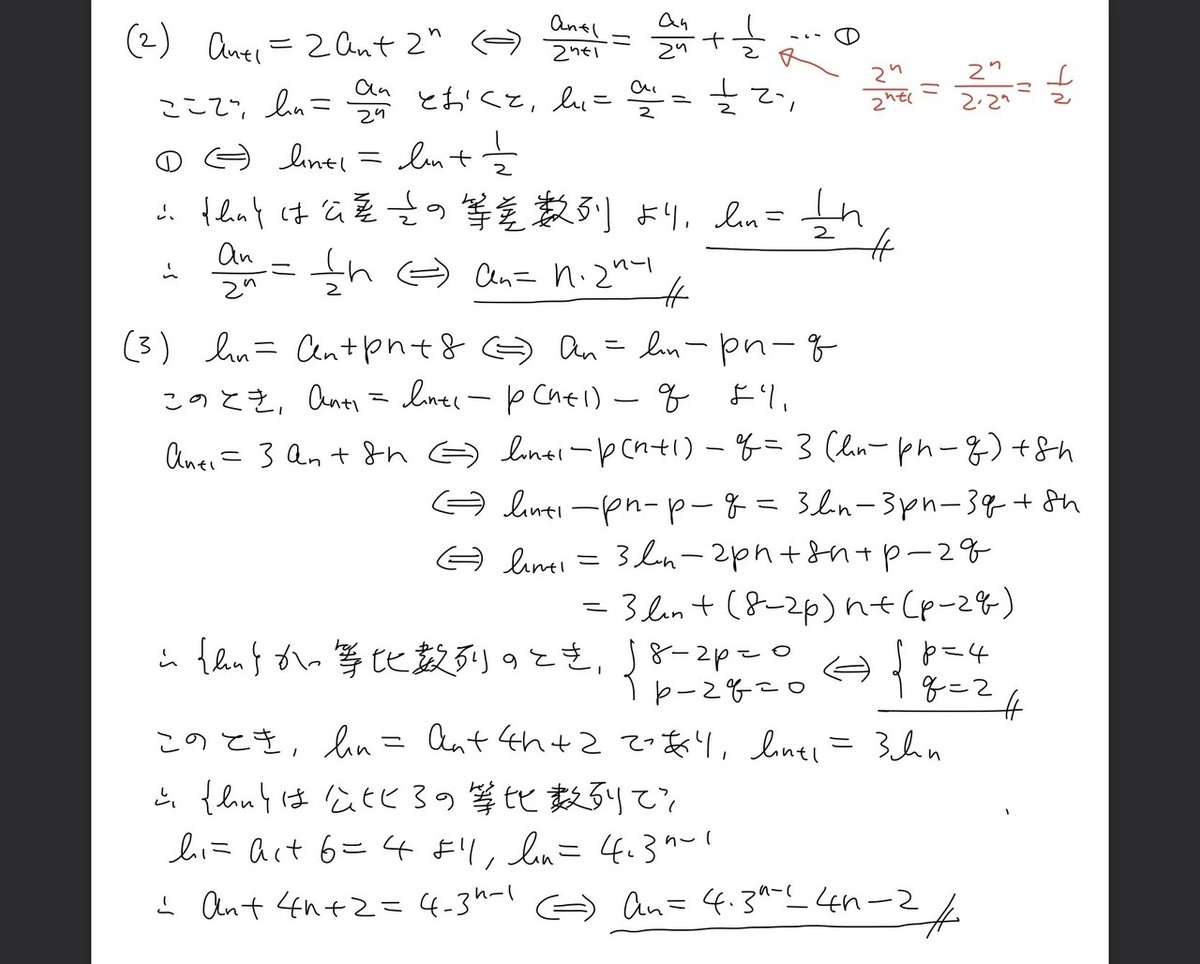 (2) a_{n+1} = 2a_n + 2^n ⇔ a_{n+1}/2^{n+1} = a_n/2^n + 1/2 … ①
2^n/2^{n+1} = 2^n/(2・2^n) = 1/2
ここで、b_n = a_n/2^n とおくと、b_1 = a_1/2 = 1/2 で、
① ⇔ b_{n+1} = b_n + 1/2
∴ {b_n} は公差 1/2 の等差数列 より、 b_n = 1/2 n
∴ a_n/2^n = 1/2 n ⇔ a_n = n・2^{n-1}
(3) b_n = a_n + pn + 8 ⇔ a_n = b_n - pn - q
このとき、a_{n+1} = b_{n+1} - p(n+1) - q より、
a_{n+1} = 3a_n + 8n ⇔ b_{n+1} - p(n+1) - q = 3(b_n - pn - q) + 8n
⇔ b_{n+1} - pn - p - q = 3b_n - 3pn - 3q + 8n
⇔ b_{n+1} = 3b_n - 2pn + 8n + p - 2q
= 3b_n + (8-2p)n + (p-2q)
∴ {b_n} が等比数列のとき、{ 8-2p=0 ⇔ { p=4
p-2q=0 q=2
このとき、b_n = a_n + 4n + 2 であり、b_{n+1} = 3b_n
∴ {b_n} は公比3の等比数列で、
b_1 = a_1 + 6 = 4 より、b_n = 4・3^{n-1}
∴ a_n + 4n + 2 = 4・3^{n-1} ⇔ a_n = 4・3^{n-1} - 4n - 2